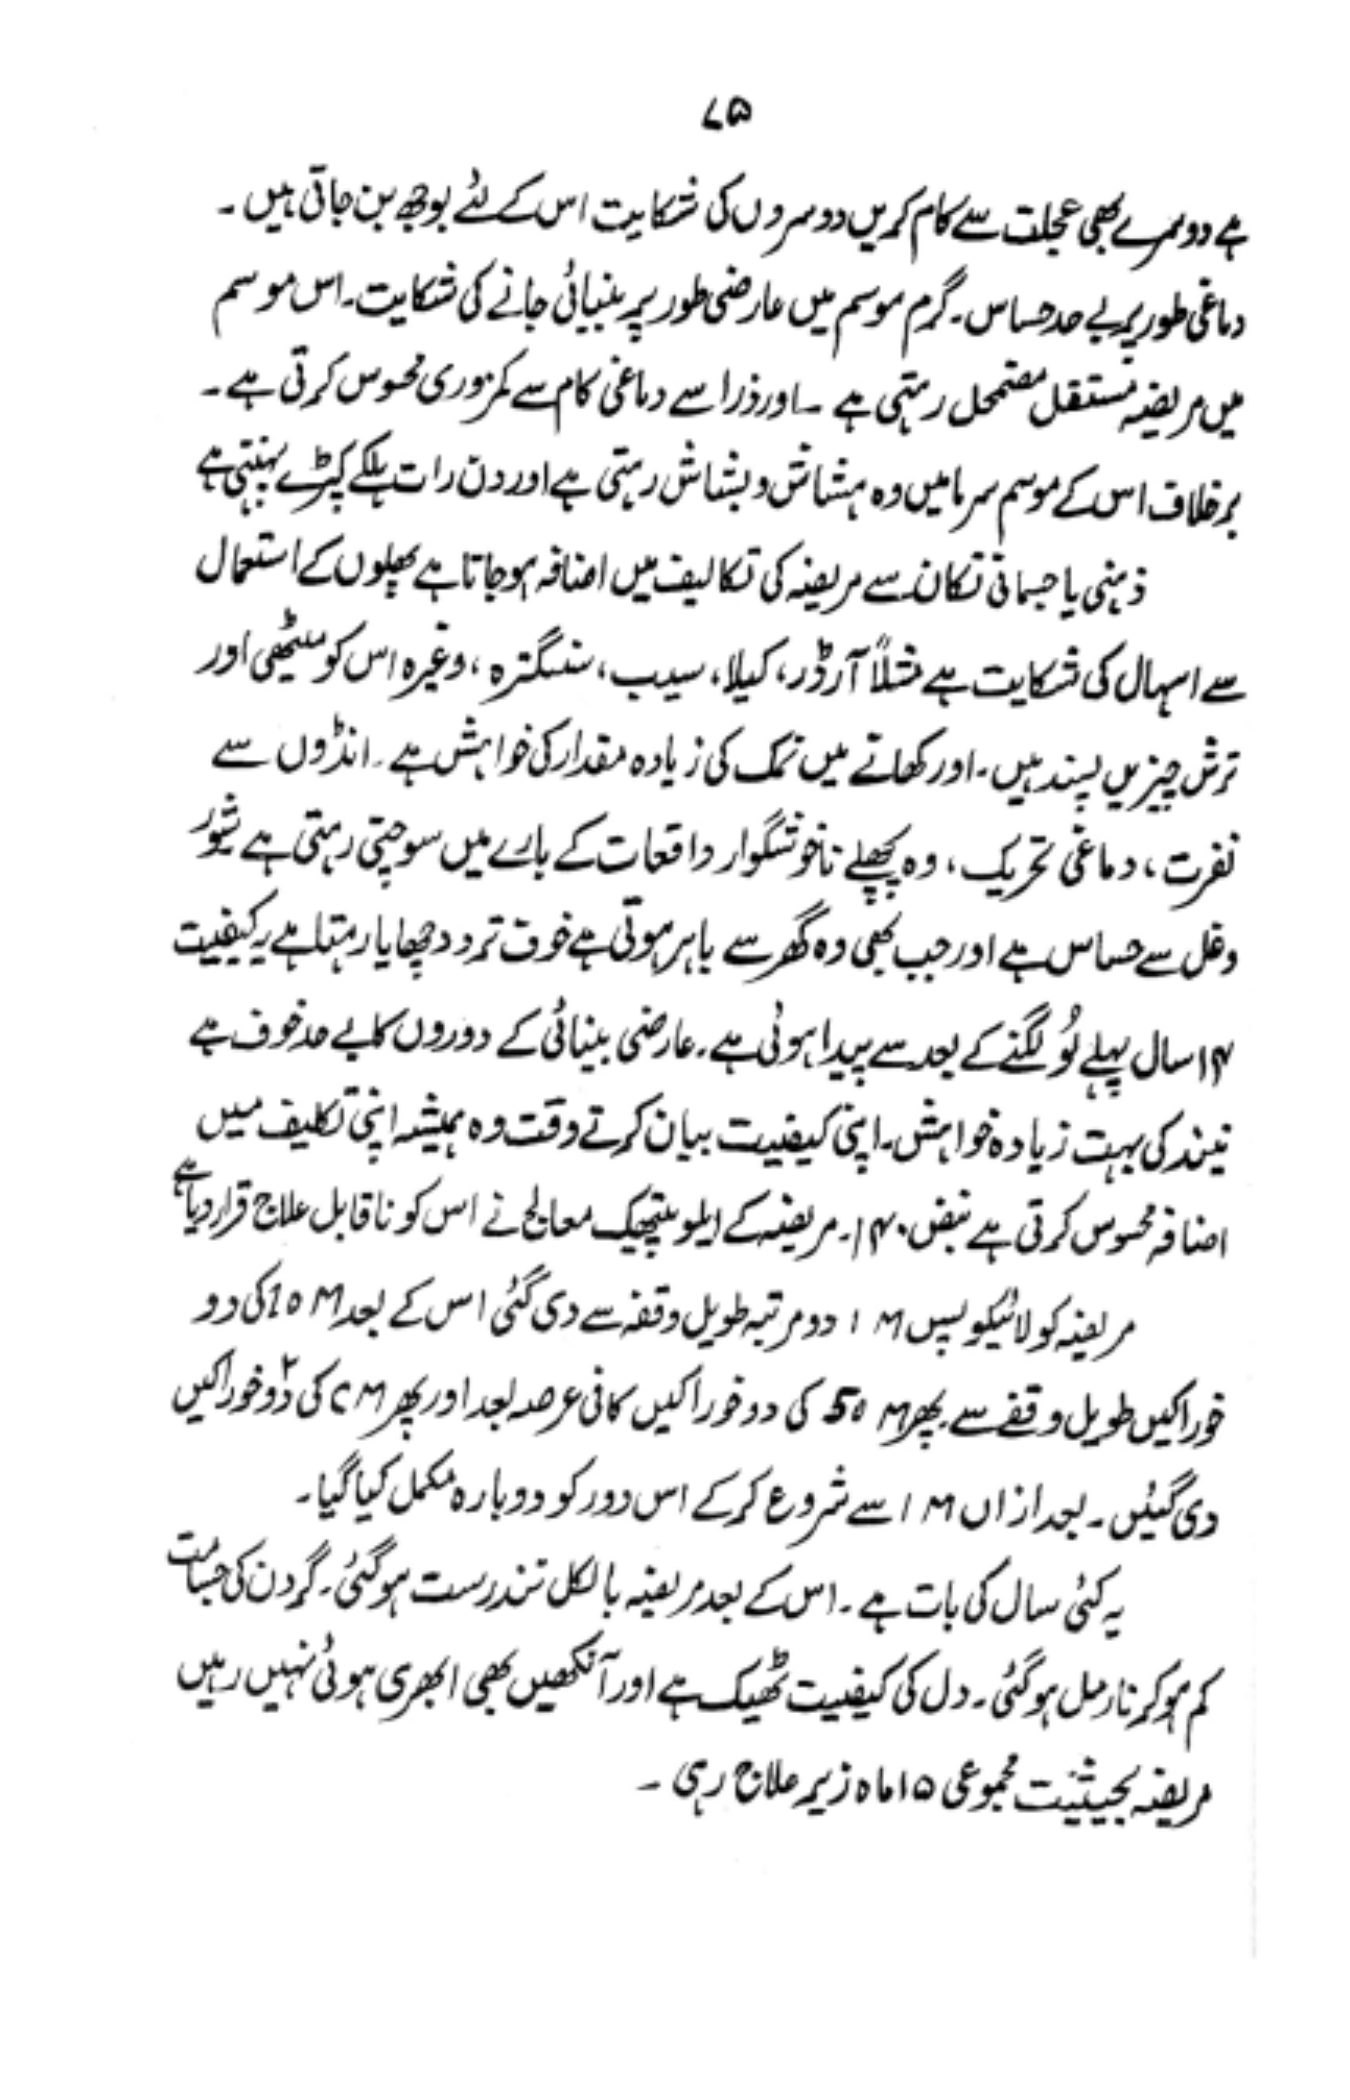 ۷۵
ہے دوسرے بھی عجلت سے کام کریں دوسروں کی شکایت اس کے لئے بوجھ بن جاتی ہیں ۔
دماغی طور پر بے حد حساس ۔ گرم موسم میں عارضی طور پر بنیائی جانے کی شکایت ۔ اس موسم
میں مریضہ مستقل مضمحل رہتی ہے ۔ اور ذرا سے دماغی کام سے کمزوری محسوس کرتی ہے ۔
برخلاف اس کے موسم سرما میں وہ ہشاش و بشاش رہتی ہے اور دن رات ہلکے کپڑے پہنتی ہے
ذہنی یا جسمانی تکان سے مریضہ کی تکالیف میں اضافہ ہو جاتا ہے پھلوں کے استعمال
سے اسہال کی شکایت ہے مثلاً آرڈر، کیلا، سیب، سنگترہ، وغیرہ اس کو میٹھی اور
ترش چیزیں پسند ہیں ۔ اور کھانے میں نمک کی زیادہ مقدار کی خواہش ہے ۔ انڈوں سے
نفرت، دماغی تحریک، وہ پچھلے ناخوشگوار واقعات کے بارے میں سوچتی رہتی ہے شور
وغل سے حساس ہے اور جب بھی وہ گھر سے باہر ہوتی ہے خوف تردد چھایا رہتا ہے یہ کیفیت
۱۴ سال پہلے لُو لگنے کے بعد سے پیدا ہوئی ہے ۔ عارضی بینائی کے دوروں کا بے حد خوف ہے
نیند کی بہت زیادہ خواہش ۔ اپنی کیفیت بیان کرتے وقت وہ ہمیشہ اپنی تکلیف میں
اضافہ محسوس کرتی ہے نبض ۱۴۰ ۔ مریضہ کے ایلوپیتھیک معالج نے اس کو ناقابل علاج قرار دیا ہے
مریضہ کو لائیکوپس 1M دو مرتبہ طویل وقفہ سے دی گئی اس کے بعد 10M کی دو
خوراکیں طویل وقفے سے پھر 50M کی دو خوراکیں کافی عرصہ بعد اور پھر CM کی دو۲ خوراکیں
دی گئیں ۔ بعد ازاں 1M سے شروع کر کے اس دور کو دوبارہ مکمل کیا گیا ۔
یہ کئی سال کی بات ہے ۔ اس کے بعد مریضہ بالکل تندرست ہو گئی ۔ گردن کی جسامت
کم ہو کر نارمل ہو گئی ۔ دل کی کیفیت ٹھیک ہے اور آنکھیں بھی ابھری ہوئی نہیں رہیں
مریضہ بحیثیت مجموعی ۱۵ ماہ زیر علاج رہی ۔